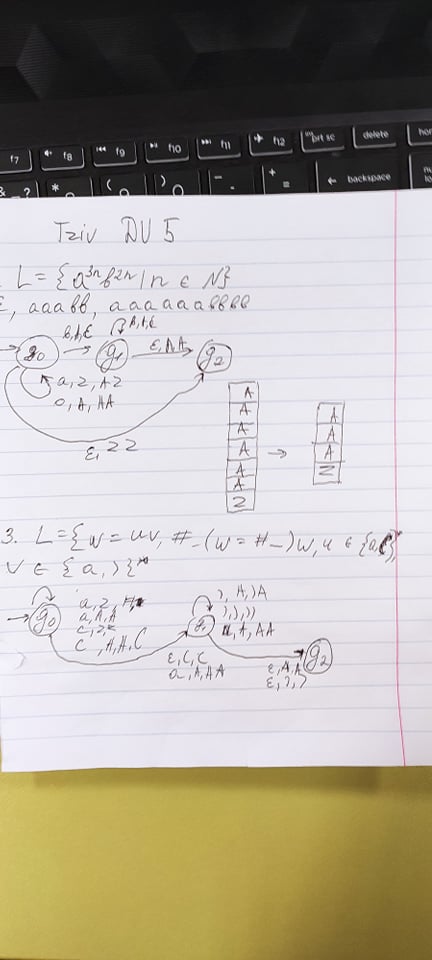 f7 f8 f9 f10 f11 f12 prt sc delete
backspace
Tziv DU 5
L = {a³ⁿb²ⁿ | n ∈ N}
ε, aaabb, aaaaaabbbb
b,A,ε A,A,ε
g₀ g₁ ε,A,A g₂
a, Z, AZ
a, A, AA
ε, ZZ
A
A
A
A
A
A
Z
A
A
A
Z
3. L = {w = uv, #_(w = #_)w, u ∈ {a,(}*
v ∈ {a, )}*
g₀ g₁ g₂
a,Z,
a,A,A
C,A,A,C
), A, )A
),),))
a, A, AA
ε, C, C
a, A, AA
ε, A, A
ε, ), )